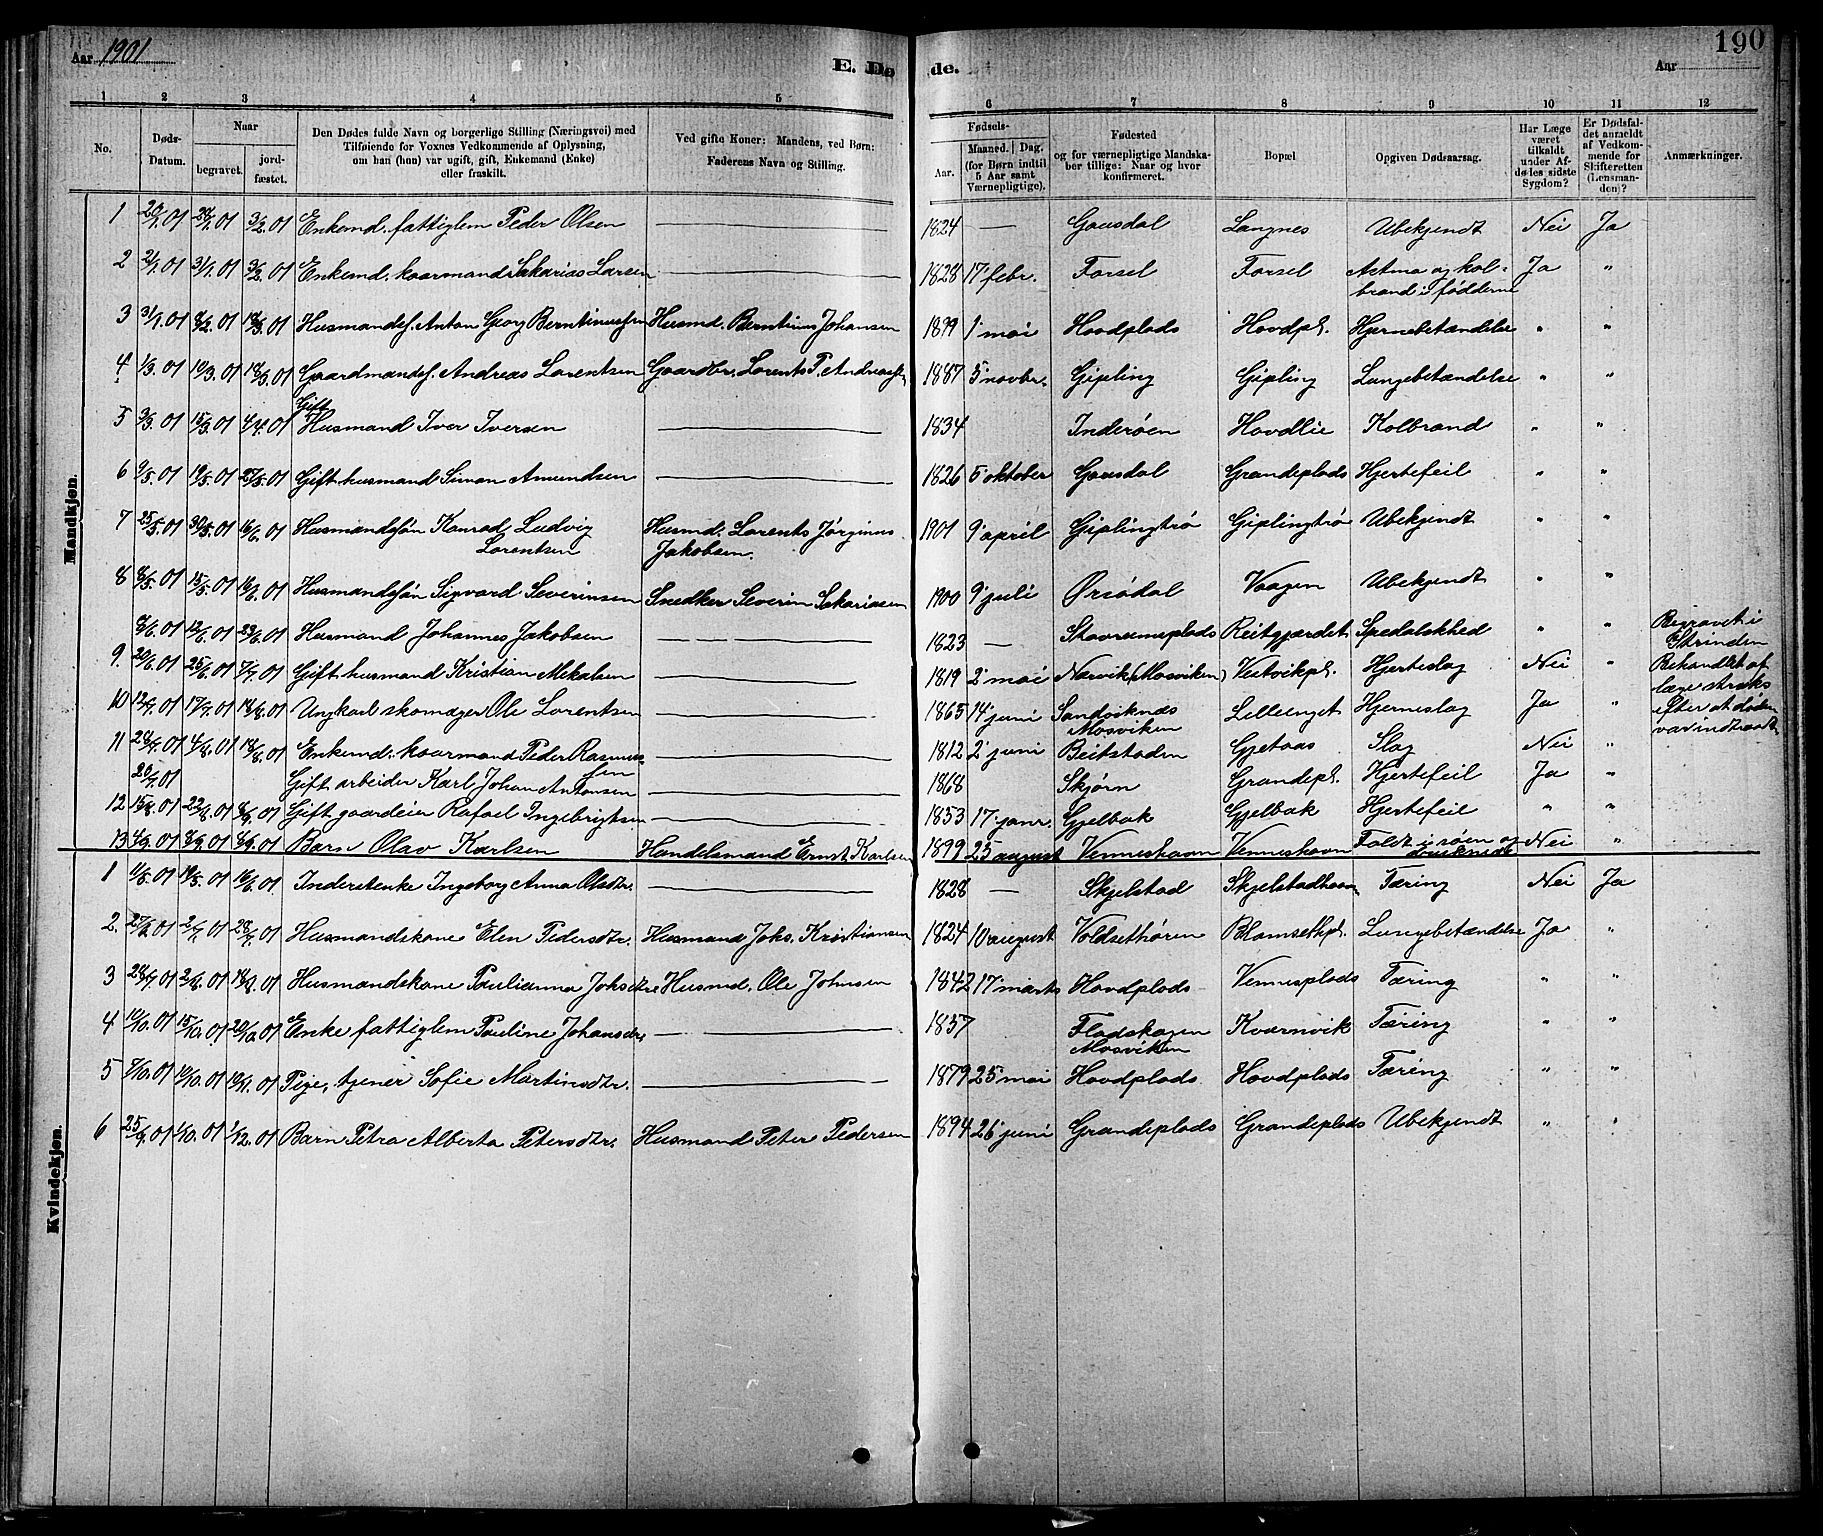 Aar 1901
E. Dø
de.
Aar
190
1 2 3 4 5 6 7 8 9 10 11 12
No.
Døds-Datum.
Naar
begravet.
jord-fæstet.
Den Dødes fulde Navn og borgerlige Stilling (Næringsvei) med
Tilføiende for Voxnes Vedkommende af Oplysning,
om han (hun) var ugift, gift, Enkemand (Enke)
eller fraskilt.
Ved gifte Koner: Mandens, ved Børn:
Faderens Navn og Stilling.
Fødsels-
Aar.
Maaned. Dag.
(for Børn indtil
5 Aar samt
Værnepligtige).
Fødested
og for værnepligtige Mandska-
ber tillige: Naar og hvor
konfirmeret.
Bopæl
Opgiven Dødsaarsag.
Har Læge
været
tilkaldt
under Af-
dødes sidste
Sygdom?
Er Dødsfal-
det anmeldt
af Vedkom-
mende for
Skifteretten
(Lensman-
den)?
Anmærkninger.
Mandkjøn.
1 20/1.01 28/1.01 3/2.01 Enkemd. fattiglem Peder Olsen 1824 — Gausdal Langnes Ubekjendt Nei Ja
2 21/1.01 31/1.01 3/2.01 Enkemd. kaarmand Sakarias Larsen 1828 17' febr. Forsel Forsel Astma og kol- Ja "
brand i fødderne
3 31/1.01 8/2.01 18/3.01 Husmandss. Anton Georg Berntinussen Husmd. Berntinus Johansen 1899 1' mai Hovdplads Hovdpl. Hjernebetændelse " "
4 1/3.01 10/3.01 18/3.01 Gaardmandss. Andreas Lorentsen Gaardbr. Lorents P. Andreassen 1887 5' novbr. Gipling Gipling Lungebetændelse " "
Gift
5 3/3.01 15/3.01 4/4.01 Husmand Iver Iversen 1834 Inderøen Hovdlie Kolbrand " "
6 9/5.01 19/5.01 27/5.01 Gift husmand Simon Amundsen 1826 5' oktober Gausdal Grandeplads Hjertefeil " "
7 25/5.01 30/5.01 16/6.01 Husmandssøn Konrad Ludvig Husmd. Lorents Jørginus 1901 9' april Giplingtrø Giplingtrø Ubekjendt " "
Lorentsen Jakobsen.
8 8/5.01 15/5.01 16/6.01 Husmandssøn Sigvard Severinsen Snedker Severin Sakariasen 1900 9' juli Ørsødal Vaagen Ubekjendt " "
8/6.01 12/6.01 23/6.01 Husmand Johannes Jakobsen 1823 — Stavrumsplads Reitgjærdet Spedalskhed " " Begravet i
Strinden
9. 20/6.01 25/6.01 7/7.01 Gift husmand Kristian Mikalsen 1819 2' mai Nærvik (Mosviken) Vestvikpl. Hjerteslag Nei " Behandlet af
læge straks
10 12/7.01 17/7.01 18/8.01 Ungkarl skomager Ole Lorentsen 1865 14' juni Sandviknæs Lilleenget Hjerneslag Ja " efter at døden
Mosviken var indtraadt
11 28/7.01 4/8.01 18/8.01 Enkemd. kaarmand Peder Rasmus- 1812 2' juni Beitstaden Gjetaas Slag Nei "
sen
20/7.01 Gift arbeider Karl Johan Antonsen 1868 Skjørn Grandepl. Hjertefeil Ja "
12 15/8.01 22/8.01 8/9.01 Gift gaardeier Rafael Ingebrigtsen 1853 17' janr. Gjelbak Gjelbak Hjertefeil " "
13 4/9.01 8/9.01 8/9.01 Barn Olav Karlsen Handelsmand Ernst Karlsen 1899 25 august Venneshavn Venneshavn Faldt i søen og Nei "
druknede
Kvindekjøn.
1 11/5.01 19/5.01 16/6.01 Inderstenke Ingeborg Anna Olsdtr. 1828 — Skjelstad Skjelstadhavn Tæring Nei Ja
2. 27/6.01 2/7.01 28/7.01 Husmandskone Elen Pedersdtr. Husmand Johs. Kristiansen 1824 10' august Voldsethøren Blomsethpl. Lungebetændelse Ja "
3 28/7.01 2/8.01 18/8.01 Husmandskone Paulianna Johsdtr. Husmd. Ole Johnsen 1842 17' marts Hovdplads Vennesplads Tæring " "
4 10/10.01 15/10.01 20/10.01 Enke fattiglem Pauline Johansdtr. 1837 Fladskagen Kvernvik Tæring " "
Mosviken
5 7/10.01 10/10.01 10/11.01 Pige, tjener Sofie Martinsdtr. 1879 25 mai Hovdplads Hovdplads Tæring " "
6 25/9.01 1/10.01 1/12.01 Barn Petra Alberta Petersdtr. Husmand Peter Pedersen 1894 26' juni Grandeplads Grandeplads Ubekjendt " "